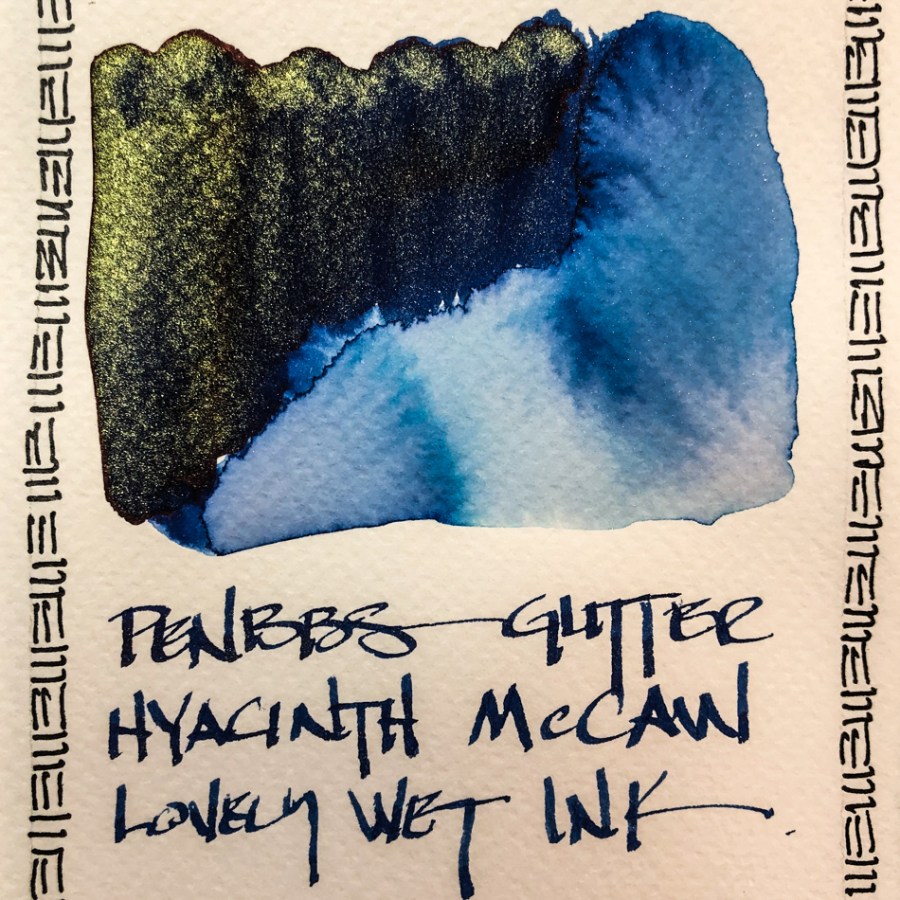 PENBBS—GLITTER
HYACINTH McCAW
LOVELY WET INK.